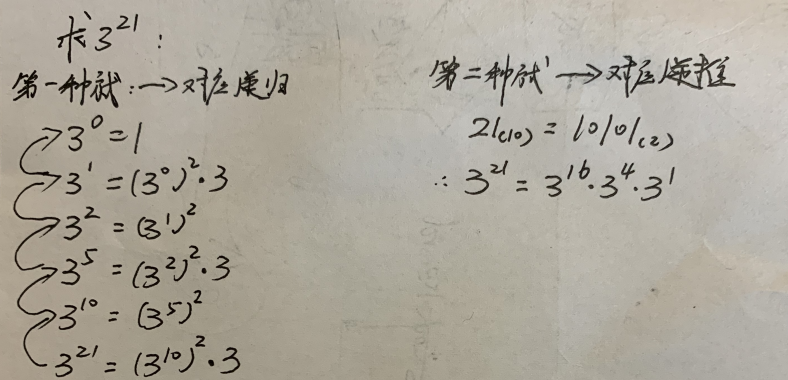 求3^21:
第一种方式:→对应递归
3^0=1
3^1=(3^0)^2·3
3^2=(3^1)^2
3^5=(3^2)^2·3
3^10=(3^5)^2
3^21=(3^10)^2·3
第二种方式→对应递推
21(10)=10101(2)
∴3^21=3^16·3^4·3^1